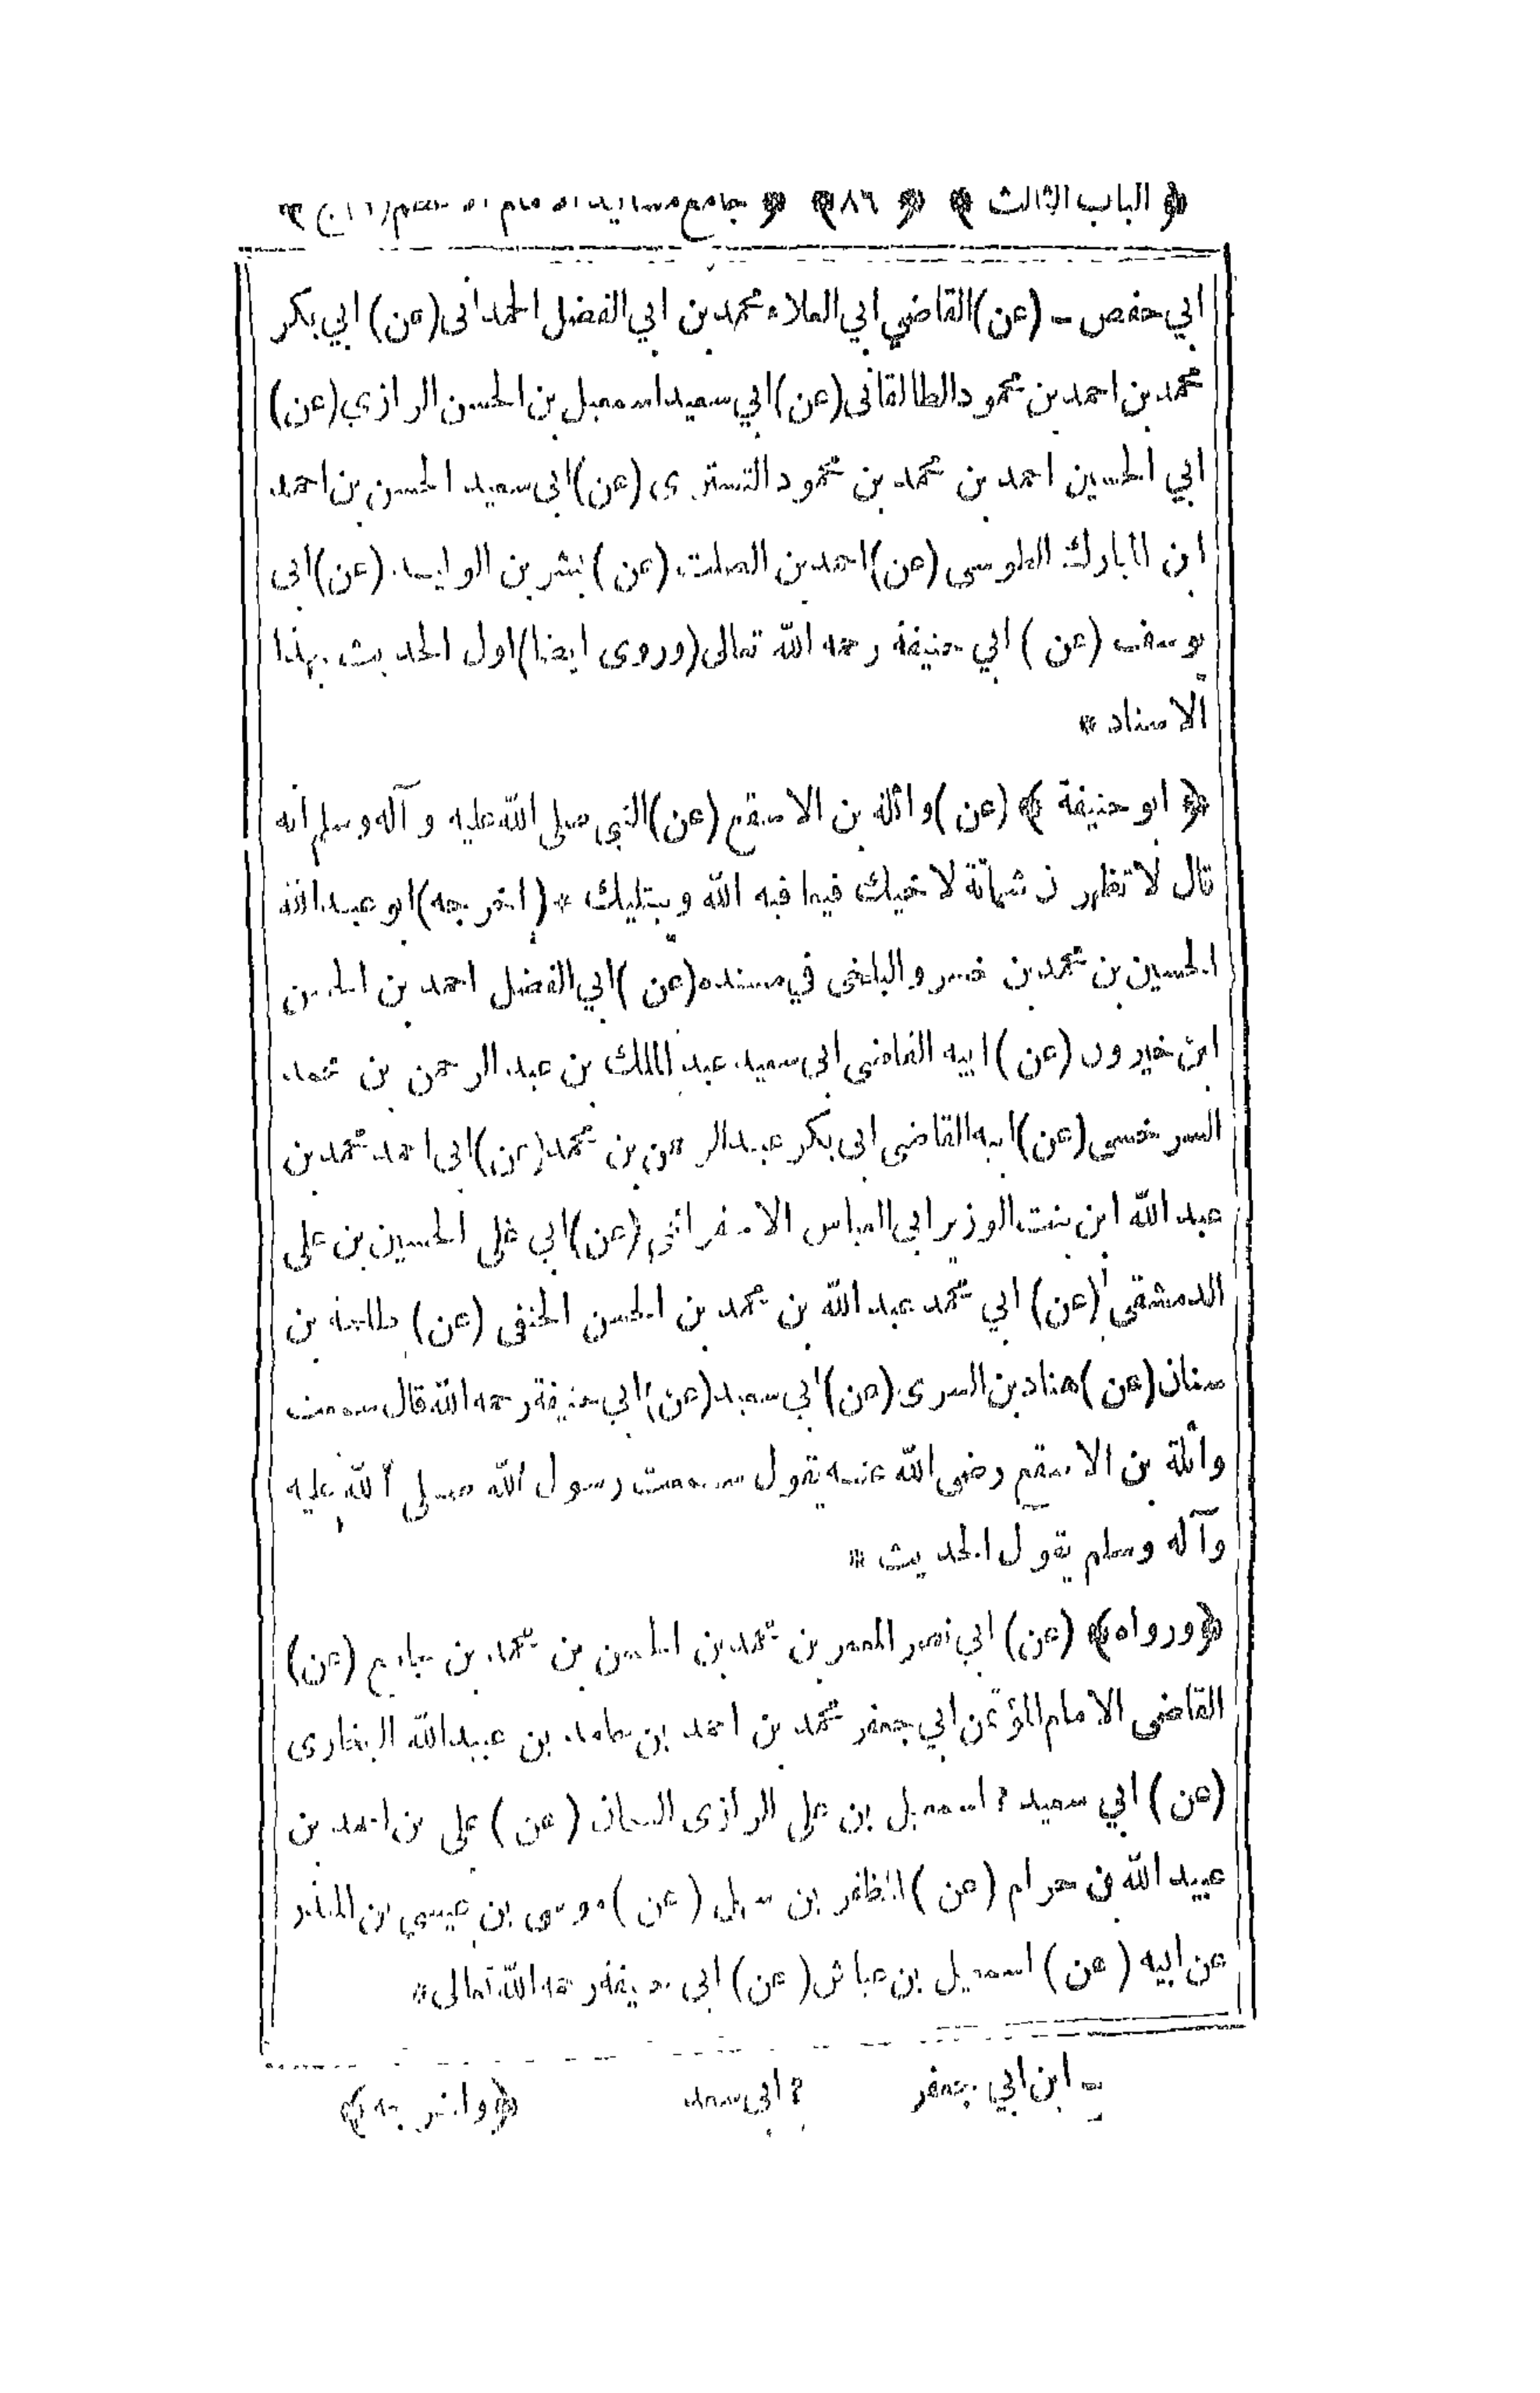 ﴿ الباب الثالث ﴾ ﴿ ٨٦ ﴾ ﴿ جامع مسانيد الامام الاعظم
ابي حفص - (عن) القاضي ابي العلاء محمد بن ابي الفضل الحمدانى (عن) ابي بكر
محمد بن احمد بن محمود الطالقانى (عن) ابي سعيد اسمعيل بن الحسن الرازي (عن)
ابي الحسين احمد بن محمد بن محمود التسترى (عن) ابى سعيد الحسن بن احمد
ابن المبارك الطوسى (عن) احمد بن الصلت (عن) بشر بن الوليد (عن) ابى
يوسف (عن) ابي حنيفة رحمه الله تعالى (وروى ايضا) اول الحديث بهذا
الاسناد *
﴿ ابو حنيفة ﴾ (عن) واثلة بن الاسقع (عن) النبى صلى الله عليه وآله وسلم انه
قال لا تظهرن شماتة لاخيك فيعافيه الله ويبتليك * (اخرجه) ابو عبد الله
الحسين بن محمد بن خسرو البلخى في مسنده (عن) ابي الفضل احمد بن الحسن
ابن خيرون (عن) ابيه القاضى ابى سعيد عبد الملك بن عبد الرحمن بن محمد
السرخسى (عن) ابيه القاضى ابى بكر عبد الرحمن بن محمد (عن) ابى احمد محمد بن
عبد الله ابن بنت الوزير ابى العباس الاسفرائنى (عن) ابي على الحسين بن على
الدمشقى (عن) ابي محمد عبد الله بن محمد بن الحسن الحنفى (عن) طلحة بن
سنان (عن) هناد بن السرى (عن) ابي سعيد (عن) ابي حنيفة رحمه الله قال سمعت
واثلة بن الاسقع رضى الله عنه يقول سمعت رسول الله صلى الله عليه
وآله وسلم يقول الحديث *
﴿ورواه﴾ (عن) ابي نصر المعمر بن محمد بن الحسن بن محمد بن جامع (عن)
القاضى الامام المؤتمن ابي جعفر محمد بن احمد بن حامد بن عبيد الله البخارى
(عن) ابي سعيد ٢ اسمعيل بن على الرازى السمان (عن) على بن احمد بن
عبيد الله بن حرام (عن) المظفر بن سهل (عن) موسى بن عيسى بن المنذر
عن ابيه (عن) اسمعيل بن عياش (عن) ابى حنيفة رحمه الله تعالى *
- ابن ابي جعفر ٢ ابى سعد ﴿واخرجه﴾